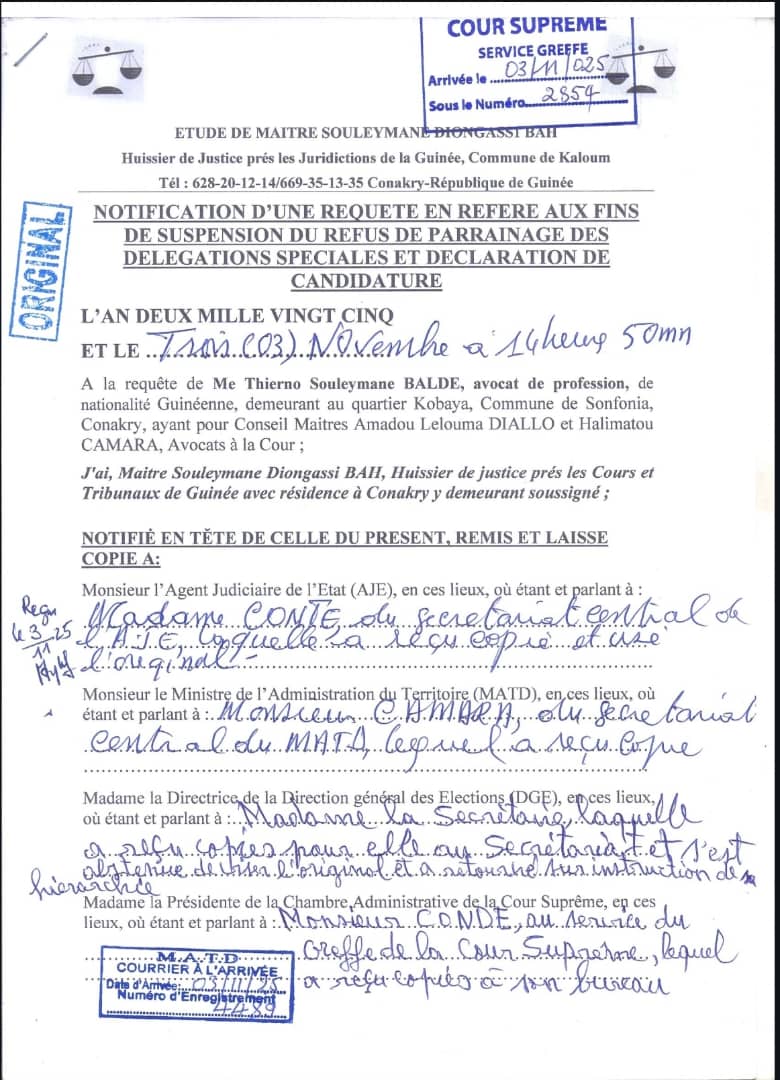 COUR SUPREME
SERVICE GREFFE
Arrivée le 03/11/025
Sous le Numéro 2854
ETUDE DE MAITRE SOULEYMANE DIONGASSI BAH
Huissier de Justice prés les Juridictions de la Guinée, Commune de Kaloum
Tél : 628-20-12-14/669-35-13-35 Conakry-République de Guinée
ORIGINAL
NOTIFICATION D'UNE REQUETE EN REFERE AUX FINS
DE SUSPENSION DU REFUS DE PARRAINAGE DES
DELEGATIONS SPECIALES ET DECLARATION DE
CANDIDATURE
L'AN DEUX MILLE VINGT CINQ
ET LE Trois (03) Novembre à 14heure 50mn
A la requête de Me Thierno Souleymane BALDE, avocat de profession, de
nationalité Guinéenne, demeurant au quartier Kobaya, Commune de Sonfonia,
Conakry, ayant pour Conseil Maitres Amadou Lelouma DIALLO et Halimatou
CAMARA, Avocats à la Cour ;
J'ai, Maitre Souleymane Diongassi BAH, Huissier de justice prés les Cours et
Tribunaux de Guinée avec résidence à Conakry y demeurant soussigné ;
NOTIFIÉ EN TÊTE DE CELLE DU PRESENT, REMIS ET LAISSE
COPIE A:
Monsieur l'Agent Judiciaire de l'Etat (AJE), en ces lieux, où étant et parlant à :
Madame CONTE du secretariat central de
l'AJE, laquelle a reçu copie et visé
l'original -
Reçu
le 3/11/25
Monsieur le Ministre de l'Administration du Territoire (MATD), en ces lieux, où
étant et parlant à : Monsieur CAMARA, du secretariat
central du MATD, lequel a reçu copie
Madame la Directrice de la Direction général des Elections (DGE), en ces lieux,
où étant et parlant à : Madame la Secrétaire, laquelle
a reçu copies pour elle au Secrétariat et s'est
abstenue de viser l'original et a retourné sur instruction de sa
hierarchie
Madame la Présidente de la Chambre Administrative de la Cour Suprême, en ces
lieux, où étant et parlant à : Monsieur CONDE, au service du
Greffe de la Cour Supreme, lequel
a reçu copies à son bureau
M.A.T.D
COURRIER À L'ARRIVÉE
Date d'Arrivée: 03/11/25
Numéro d'Enregistrement
4489